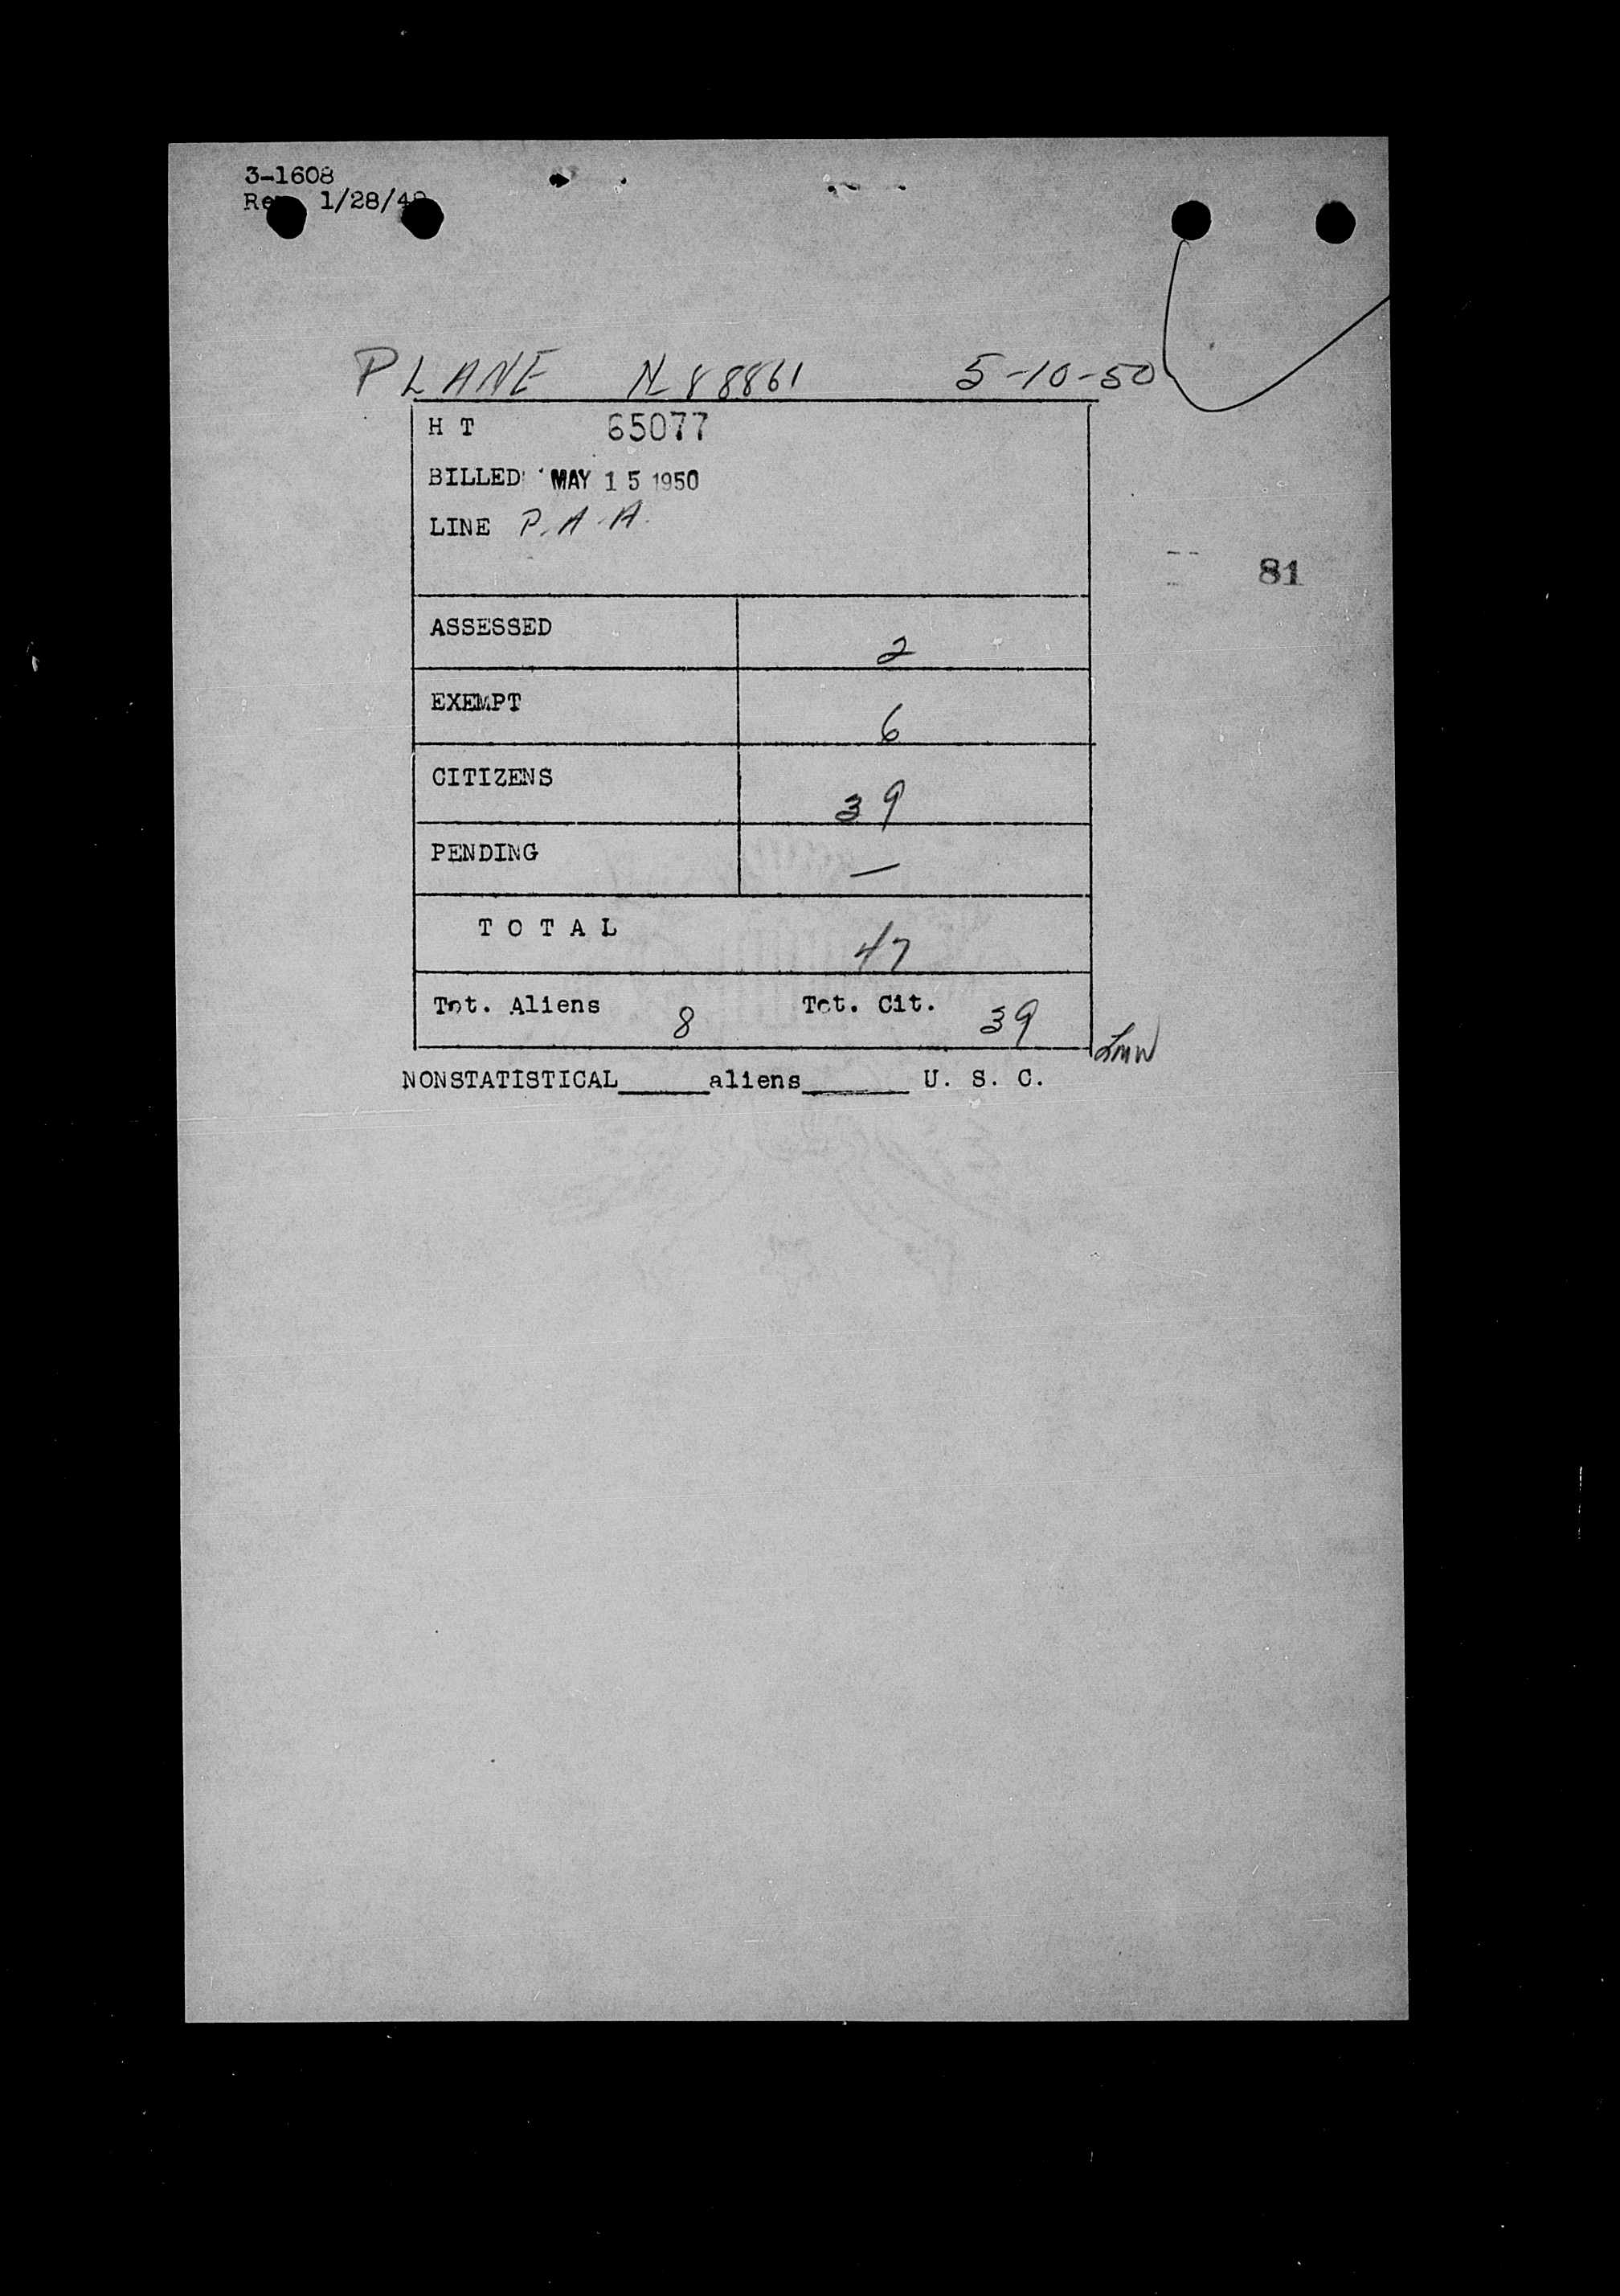 3-1608
Rev 1/28/48
PLANE N 88861 5-10-50
H T 65077
BILLED MAY 15 1950
LINE P.A.A.
81
ASSESSED 2
EXEMPT 6
CITIZENS 39
PENDING —
TOTAL 47
Tot. Aliens 8 Tot. Cit. 39
NONSTATISTICAL______aliens_______ U. S. C.